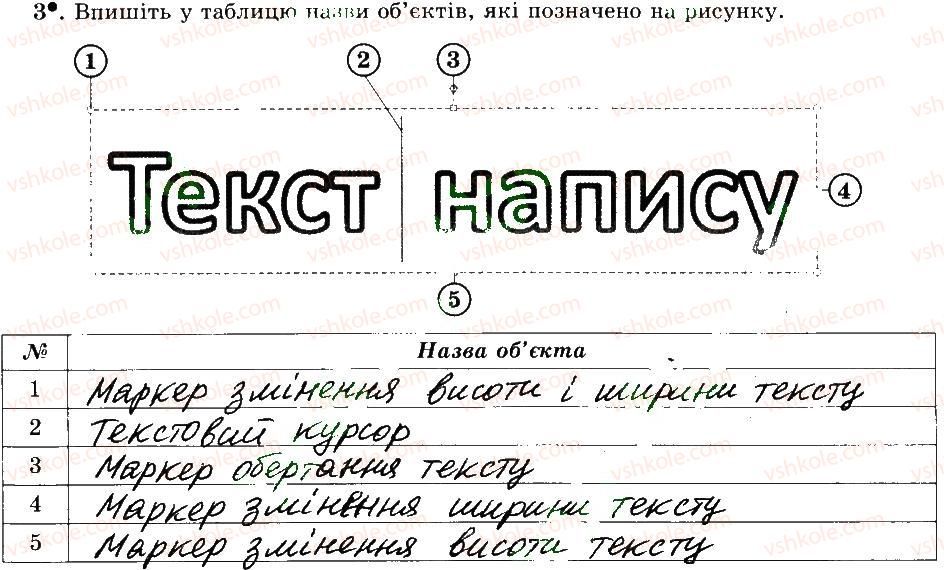 3•. Впишіть у таблицю назви об'єктів, які позначено на рисунку.
1 2 3
Текст напису
4
5
№ Назва об'єкта
1 Маркер змінення висоти і ширини тексту
2 Текстовий курсор
3 Маркер обертання тексту
4 Маркер змінення ширини тексту
5 Маркер змінення висоти тексту
vshkole.com